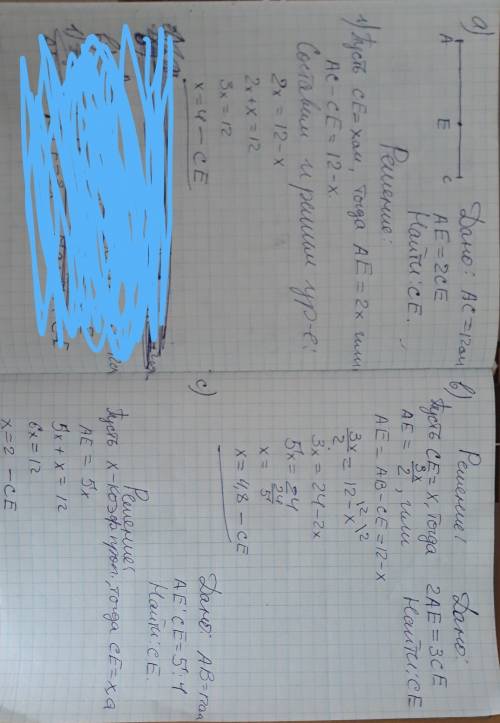 а)
A E C
Дано: AC=12см
AE=2CE
Найти: CE.
Решение:
1) Пусть CE=xсм, тогда AE=2x или
AC-CE=12-x.
Составим и решим ур-е:
2x=12-x
2x+x=12
3x=12
x=4-CE
в)
Дано:
2AE=3CE
Найти: CE
Решение:
Пусть CE=x, тогда
AE=3x/2, или
AE=AB-CE=12-x
3x/2=12-x |·2
3x=24-2x
5x=24
x=24/5
x=4,8-CE
с)
Дано: AB=12см
AE:CE=5:1
Найти: CE.
Решение:
Пусть x-коэф. проп., тогда CE=x, а
AE=5x
5x+x=12
6x=12
x=2-CE